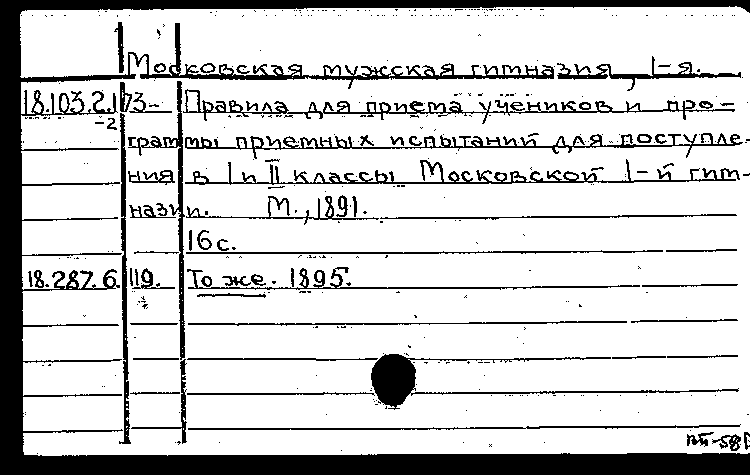 Московская мужская гимназия, I-я.
18.103.2.173-2 Правила для приема учеников и про-
граммы приемных испытаний для поступле-
ния в I и II классы Московской I-й гим-
назии. М., 1891.
16 с.
18.287.6.119. То же. 1895.